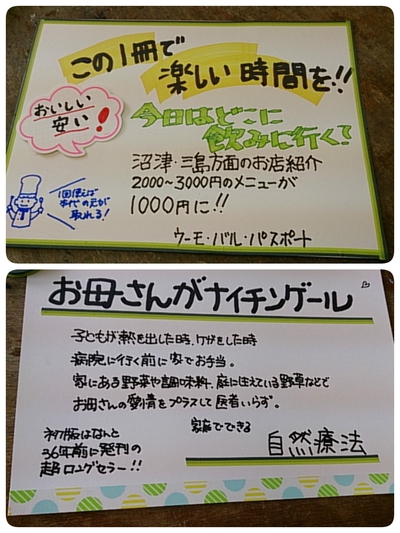 この1冊で
楽しい時間を!!
おいしい
安い!
今日はどこに
飲みに行く?
沼津・三島方面のお店紹介
2000~3000円のメニューが
1000円に!!
1回使えば
本代の元が
取れる!
ウーモ・バル・パスポート
お母さんがナイチンゲール
子どもが熱を出した時、ケガをした時
病院に行く前に家でお手当。
家にある野菜や調味料、庭に生えている野草などで
お母さんの愛情をプラスして医者いらず。
初版はなんと
36年前に発刊の
超ロングセラー!!
家庭でできる
自然療法